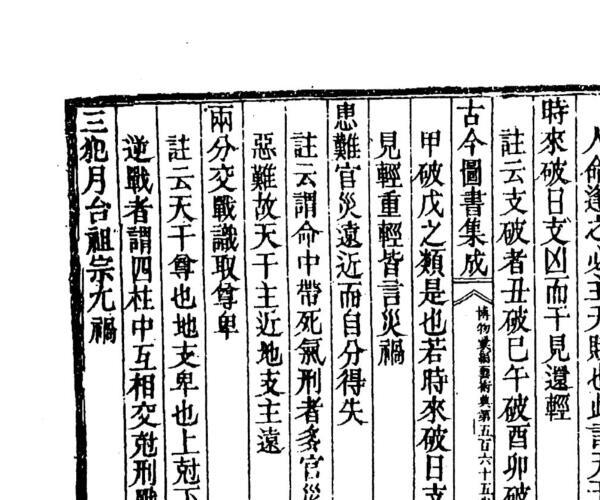 人命逢之必主夭賤也此
時來破日支凶而干見還輕
註云支破者丑破巳午破酉卯破
古今圖書集成
博物彙編藝術典第五百六十五
甲破戊之類是也若時來破日支
見輕重輕皆言災禍
患難官災遠近而自分得失
註云謂命中帶死氣刑者多官災
惡難故天干主近地支主遠
兩分交戰識取尊卑
註云天干尊也地支卑也上尅下
逆戰者謂四柱中互相交尅刑戰
三犯月台祖宗尤禍